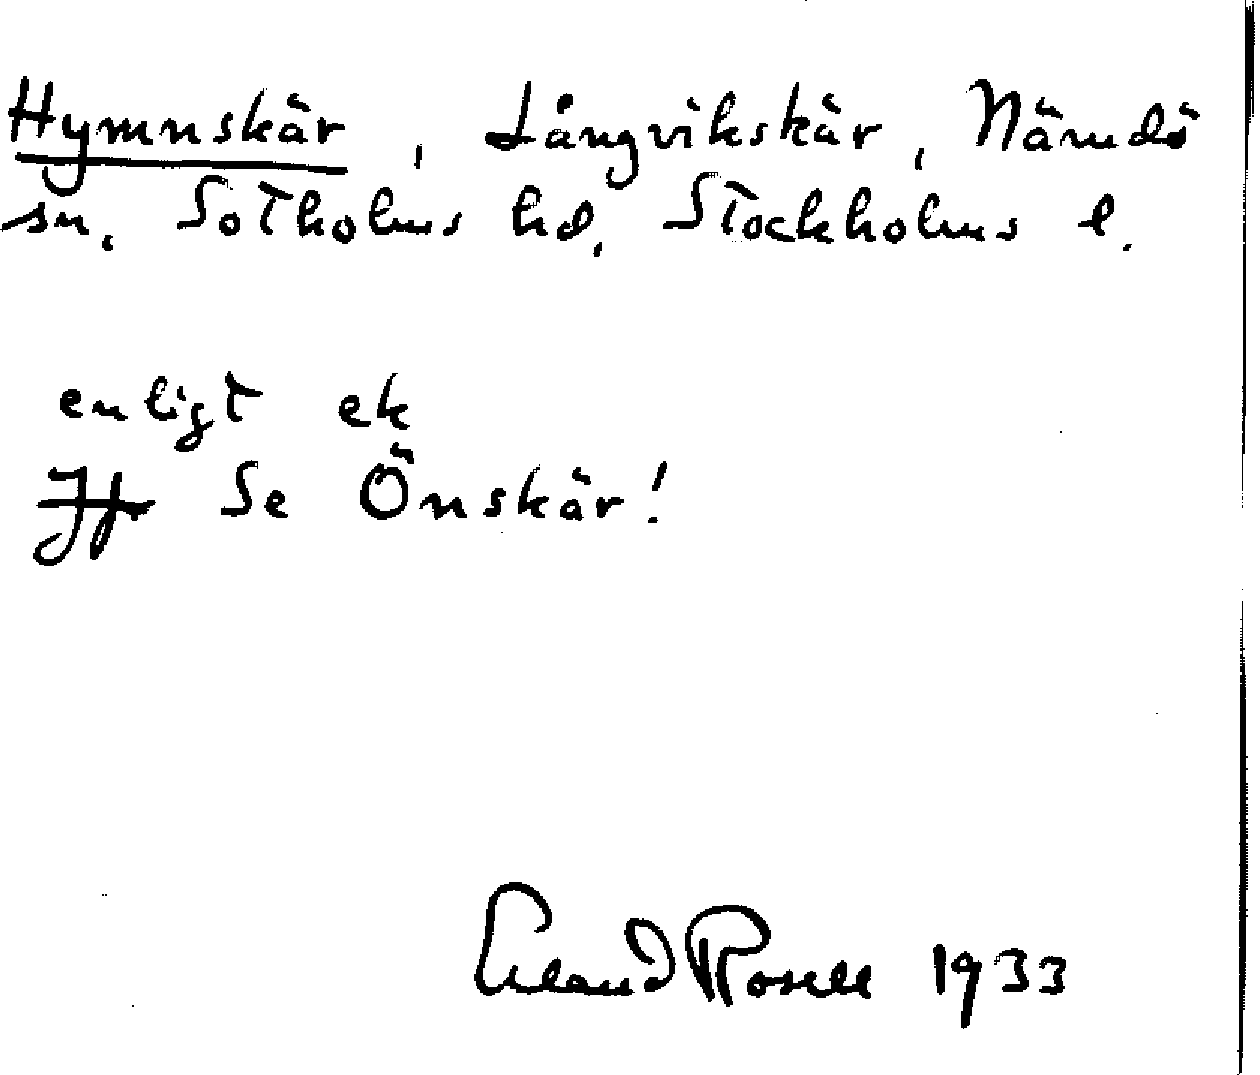 Hymnskär, Långvikskär, Nämdö
sn. Sotholms hd. Stockholms l.
enligt ek
Jfr Se Önskär!
Erland Rosell 1933